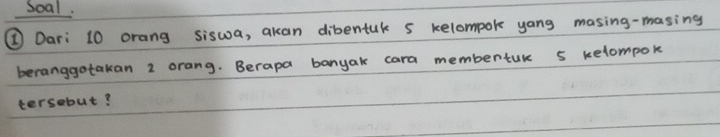 Soal.
① Dari 10 orang siswa, akan dibentuk 5 kelompok yang masing-masing
beranggotakan 2 orang. Berapa banyak cara membentuk 5 kelompok
tersebut?